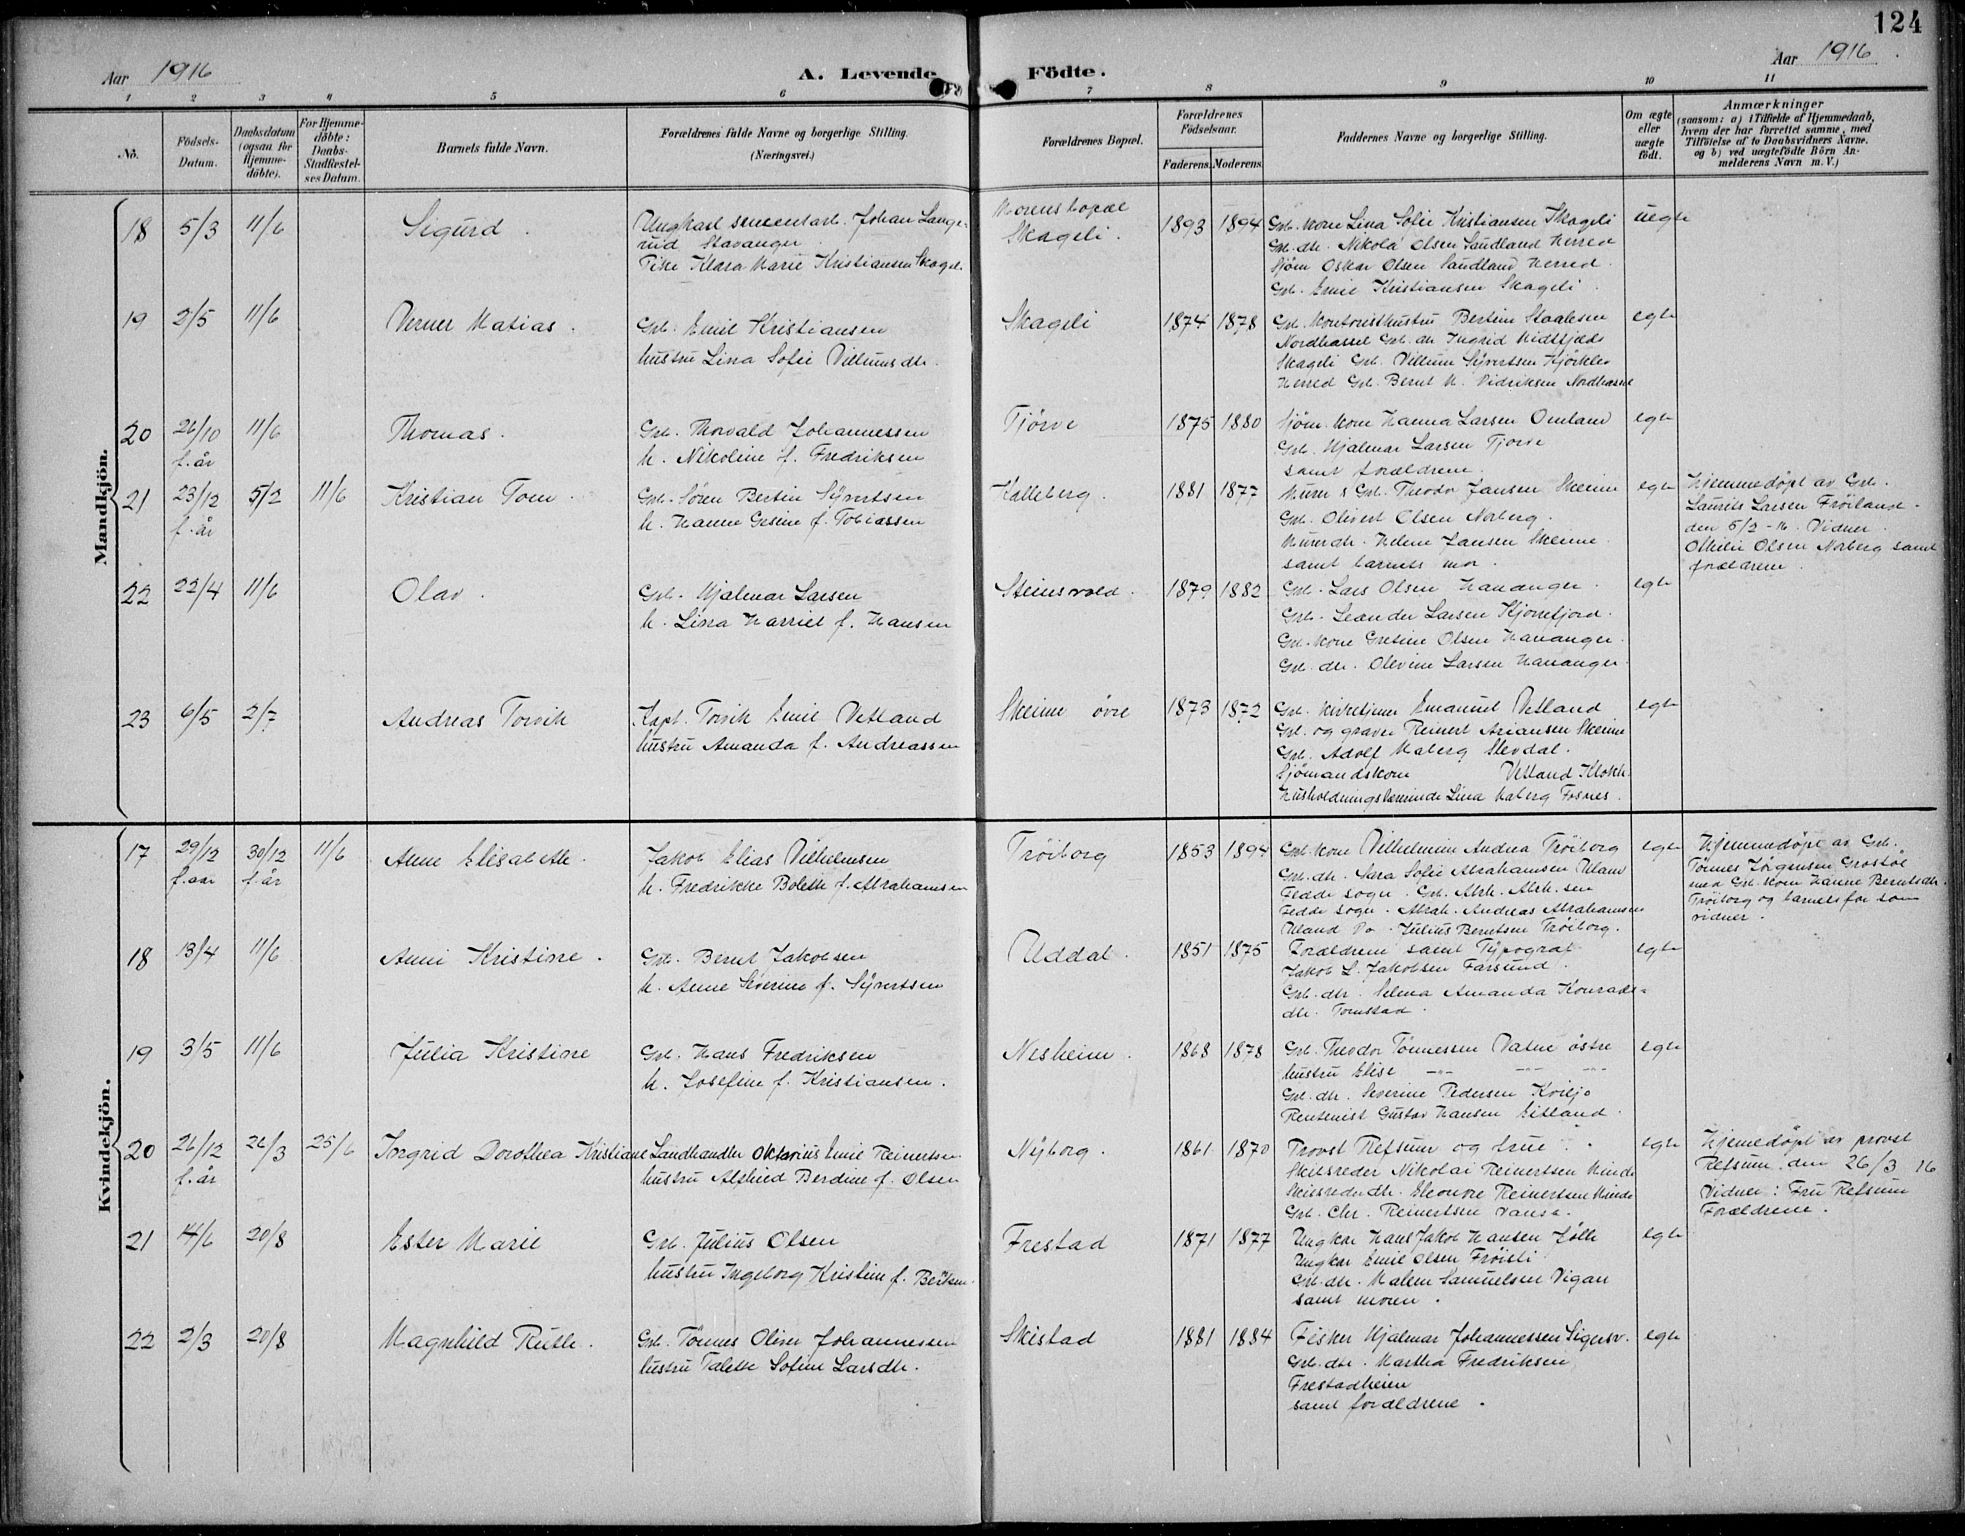 124
Aar 1916
A. Levende Födte.
Aar 1916
1 2 3 4 5 6 7 8 9 10 11
No.
Födsels-Datum.
Daabsdatum (ogsaa for Hjemme-döbte).
For Hjemme-döbte: Daabs-Stadfæstel-ses Datum.
Barnets fulde Navn.
Forældrenes fulde Navne og borgerlige Stilling.
(Næringsvei.)
Forældrenes Bopæl.
Forældrenes Födselsaar.
Faderens. Moderens.
Faddernes Navne og borgerlige Stilling.
Om ægte eller uægte født.
Anmærkninger
(saasom: a) i Tilfælde af Hjemmedaab, hvem der har forrettet samme, med Tilföielse af to Daabsvidners Navne, og b) ved uægtefödte Börn An-melderens Navn m. V.)
Mandkjön.
18 5/3 11/6 Sigurd. Ungkarl sementarb. Johan Lange-
rud Stavanger.
Pike Klara Marie Kristiansen Skageli.
Morens bopæl
Skageli. 1893 1894 Grb. kone Lina Sofie Kristiansen Skageli uegte
Grb. dtr. Nikola Olsen Sandland Herred
Sjøm Oskar Olsen Sandland Herred.
Grb. Emil Kristiansen Skageli.
19 2/5 11/6 Verner Matias. Grb. Emil Kristiansen
hustru Lina Sofie Villumsdtr.
Skageli 1874 1878 Grb. Kontoristhustru Bertine Staalesen egte
Nordhassel Grb. dtr Ingrid Midtfjeld
Skageli Grb. Villum Syvertsen Kjørkleiv
Herred Grb. Bernt M. Didriksen Nordhassel
20 26/10 f. år 11/6 Thomas. Grb. Thorvald Johannessen
h. Nikoline f. Fredriksen
Tjørve 1875 1880 Sjøm. kone Hanna Larsen Omland egte
Grb. Hjalmar Larsen Tjørve
samt forældrene.
21 23/12 f. år 5/2 11/6 Kristian Tom. Grb. Søren Bertin Syvertsen
h. Hanne Gesine f. Tobiassen
Kalleberg. 1881 1877 Murer & Grb. Theodor Jansen Skeime egte
Grb. Olivert Olsen Norberg.
Murerdtr. Helene Jansen Skeime.
samt barnets mor.
Hjemmedøpt av Grb.
Laurits Larsen Frøiland.
den 5/2 - 16. Vidner.
Othilie Olsen Norberg samt
forældrene.
22 22/4 11/6 Olav. Grb. Hjalmar Larsen
h. Lina Harriet f. Hansen
Steinsvold. 1879 1882 Grb. Lars Olsen Hananger. egte
Grb. Leander Larsen Kjørrefjord.
Grb. kone Gretine Olsen Hananger.
Grb. dtr. Olevine Larsen Hananger.
23 6/5 2/7 Andreas Torvik Kapt. Torvik Emil Vetland
hustru Amanda f. Andreassen
Skeime øvre 1873 1872 Grb. Kirketjener Emanuel Vetland egte
Grb. og graver Reinert Ariansen Skeime
Grb. Adolf Maberg Slevdal.
Sjømandskone Vetland Klokk.
Husholdningslærerinde Lina Maberg Fosnes.
Kvindekjön.
17 29/12 f. aar 30/12 f. år 11/6 Anne Elisabeth. Jakob Elias Vilhelmsen
h. Fredrikke Bolette f. Abrahamsen
Trøiborg 1853 1894 Grb. kone Vilhelmine Andrea Trøiborg egte
Grb. dtr. Sara Sofie Abrahamsen Uland
Fedde sogn. Grb. Abrh. Abrh. sen
Fedde sogn. Abrah. Andreas Abrahamsen
Uland Do. Julius Berntsen Trøiborg.
Hjemmedøpt av Grb.
Tønnes Jørgensen Grostøl
med Grb. kone Hanne Berntsdtr.
Trøiborg og barnets far som
vidner.
18 13/4 11/6 Anni Kristine. Grb. Bernt Jakobsen
h. Anne Severine f. Syvertsen
Uddal. 1851 1875 Forældrene samt Typograf egte
Jakob L. Jakobsen Farsund.
Grb. dtr. Selma Amanda Konrads-
dtr. Tomstad.
19 3/5 11/6 Julia Kristine Grb. Hans Fredriksen
h. Josefine f. Kristiansen.
Nesheim. 1868 1878 Grb. Theodor Tønnessen Vatne østre egte
hustru Elise -"- -"- -"-
Grb. dtr. Severine Pedersen Kviljo
Rentenist Gustav Hansen Eitland.
20 26/12 f. år 26/3 25/6 Ingrid Dorothea Kristiane Landhandler Oktavius Emil Reinertsen
hustru Alfhild Berdine f. Olsen
Nyborg. 1861 1870 Provst Refsum og frue. egte
Skibsreder Nikolai Reinertsen Sunde
Skibsrederdtr. Eleonore Reinertsen Sunde
Grb. Chr. Reinertsen Vanse.
Hjemedøpt av provst
Refsum den 26/3 16
Vidner: Fru Refsum
Forældrene.
21 14/6 20/8 Ester Marie Grb. Julius Olsen
hustru Ingeborg Kristine f. Bertsen.
Frestad 1871 1877 Ungkar Hans Jakob Hansen Jølle egte
Ungkar Emil Olsen Frøisti
Grb. dtr. Malene Samuelsen Vigan
samt moren.
22 2/3 20/8 Magnhild Ruth. Grb. Tønnes Oliver Johannessen
hustru Talette Sofine Larsdtr.
Skistad 1881 1884 Fisker Hjalmar Johannessen Sigersv. egte
Grb. dtr. Martha Fredriksen
Frestadheien
samt forældrene.